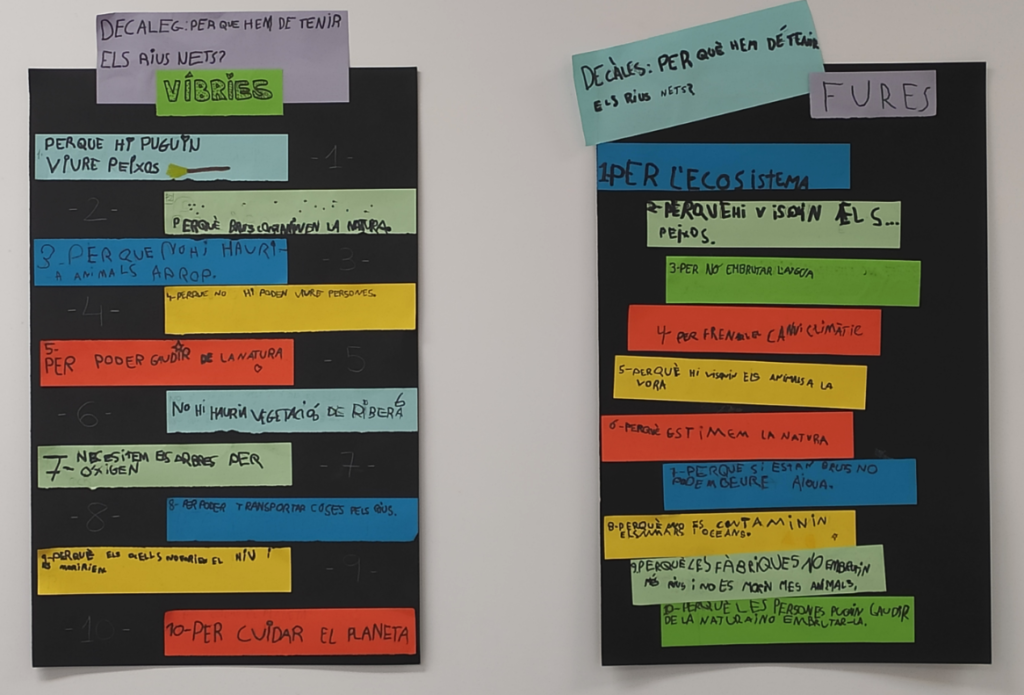 DECALEG: PER QUE HEM DE TENIR
ELS RIUS NETS?
VÍBRIES
PERQUE HI PUGUIN
VIURE PEIXOS
-1-
-2-
PERQUÈ BRUS CONTAMINEN LA NATURA.
3-PER QUE NO HI HAURI-
A ANIMALS APROP.
-3-
-4-
4-PERQUE NO HI PODEN VIURE PERSONES.
5-
PER PODER GAUDIR DE LA NATURA
-5-
-6-
NO HI HAURIA VEGETACIÓ DE RIBERA 6
7- NECESITEM ELS ARBRES PER
OXIGEN
-7-
-8-
8-PER PODER TRANSPORTAR COSES PELS RIUS.
9-PERQUÈ ELS OCELLS NOTARIEN EL NIU I
ES MORIRIEN
-9-
-10-
10-PER CUIDAR EL PLANETA
DECÀLES: PER QUÈ HEM DE TENIR
ELS RIUS NETS?
FURES
1-PER L'ECOSISTEMA
2-PERQUE HI VISQIN ELS...
PEIXOS.
3-PER NO EMBRUTAR L'AIGUA
4-PER FRENAR EL CANVI CLIMÀTIC
5-PERQUÈ HI VISQUIN ELS ANIMALS A LA
VORA
6-PERQUÈ ESTIMEM LA NATURA
7-PERQUE SI ESTAN BRUS NO
PODEM BEURE AIGUA.
8-PERQUÈ NO ES CONTAMININ
ELS MARS I OCEANS.
9.PERQUÈ LES FÀBRIQUES NO EMBRUTIN
MÉS RIUS I NO ES MORIN MES ANIMALS.
10-PERQUÈ LES PERSONES PUGIN GAUDIR
DE LA NATURA I NO EMBRUTAR-LA.